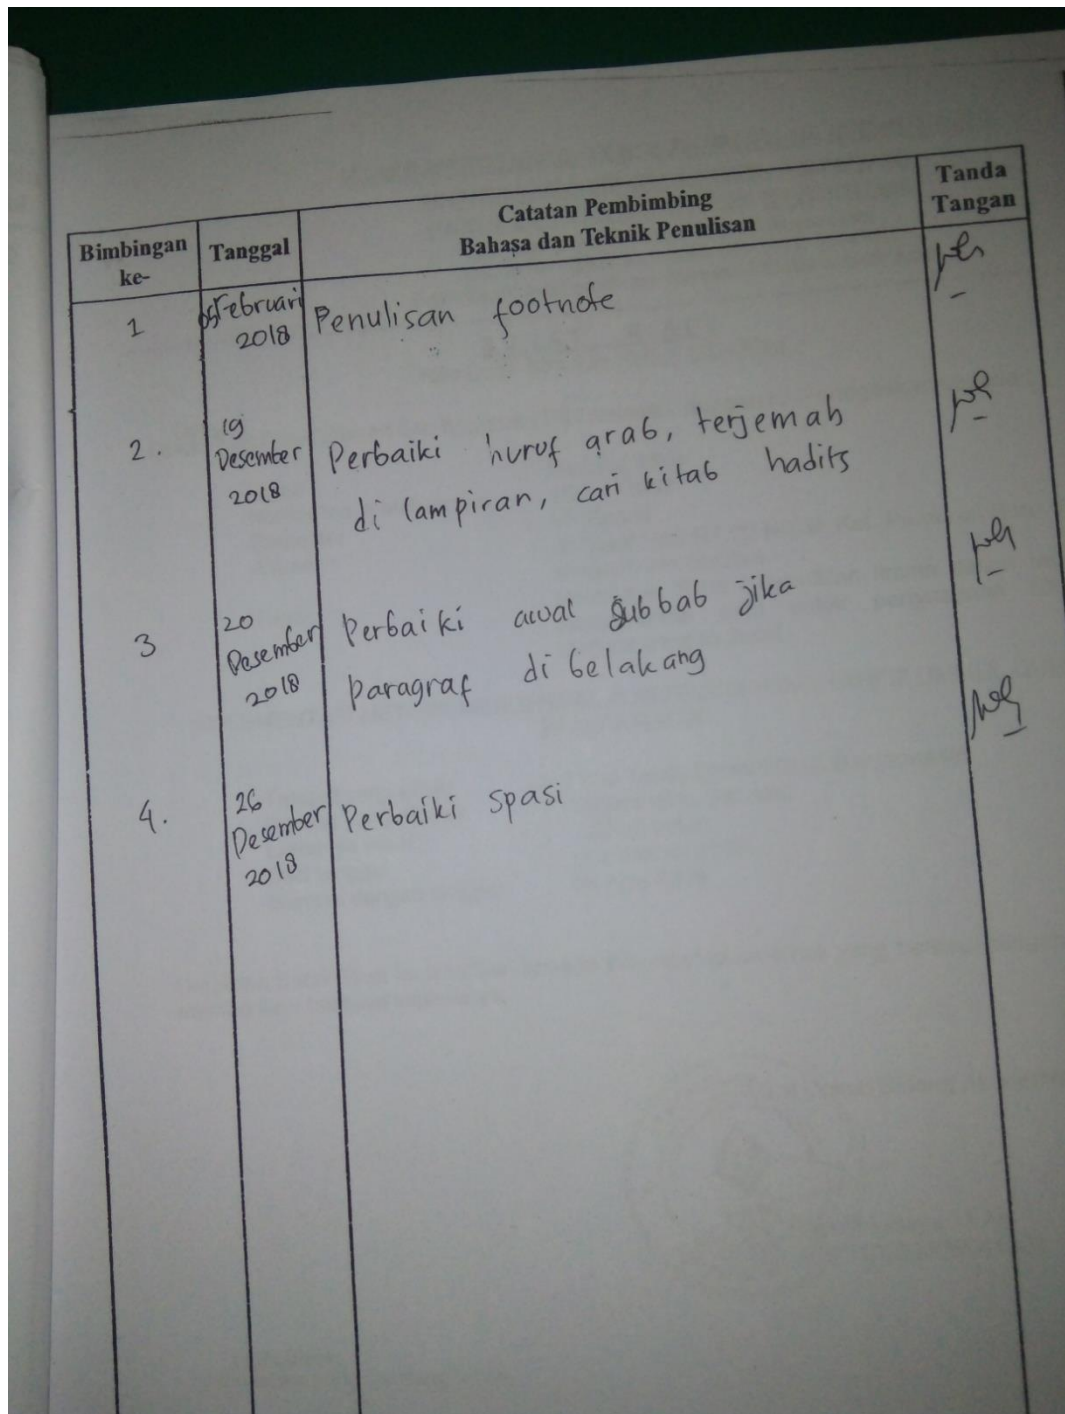 Bimbingan ke-
Tanggal
Catatan Pembimbing
Bahasa dan Teknik Penulisan
Tanda
Tangan
1
05 Februari
2018
Penulisan footnote
2.
19
Desember
2018
Perbaiki huruf arab, terjemah
di lampiran, cari kitab hadits
3
20
Desember
2018
Perbaiki awal subbab jika
paragraf di belakang
4.
26
Desember
2018
Perbaiki spasi